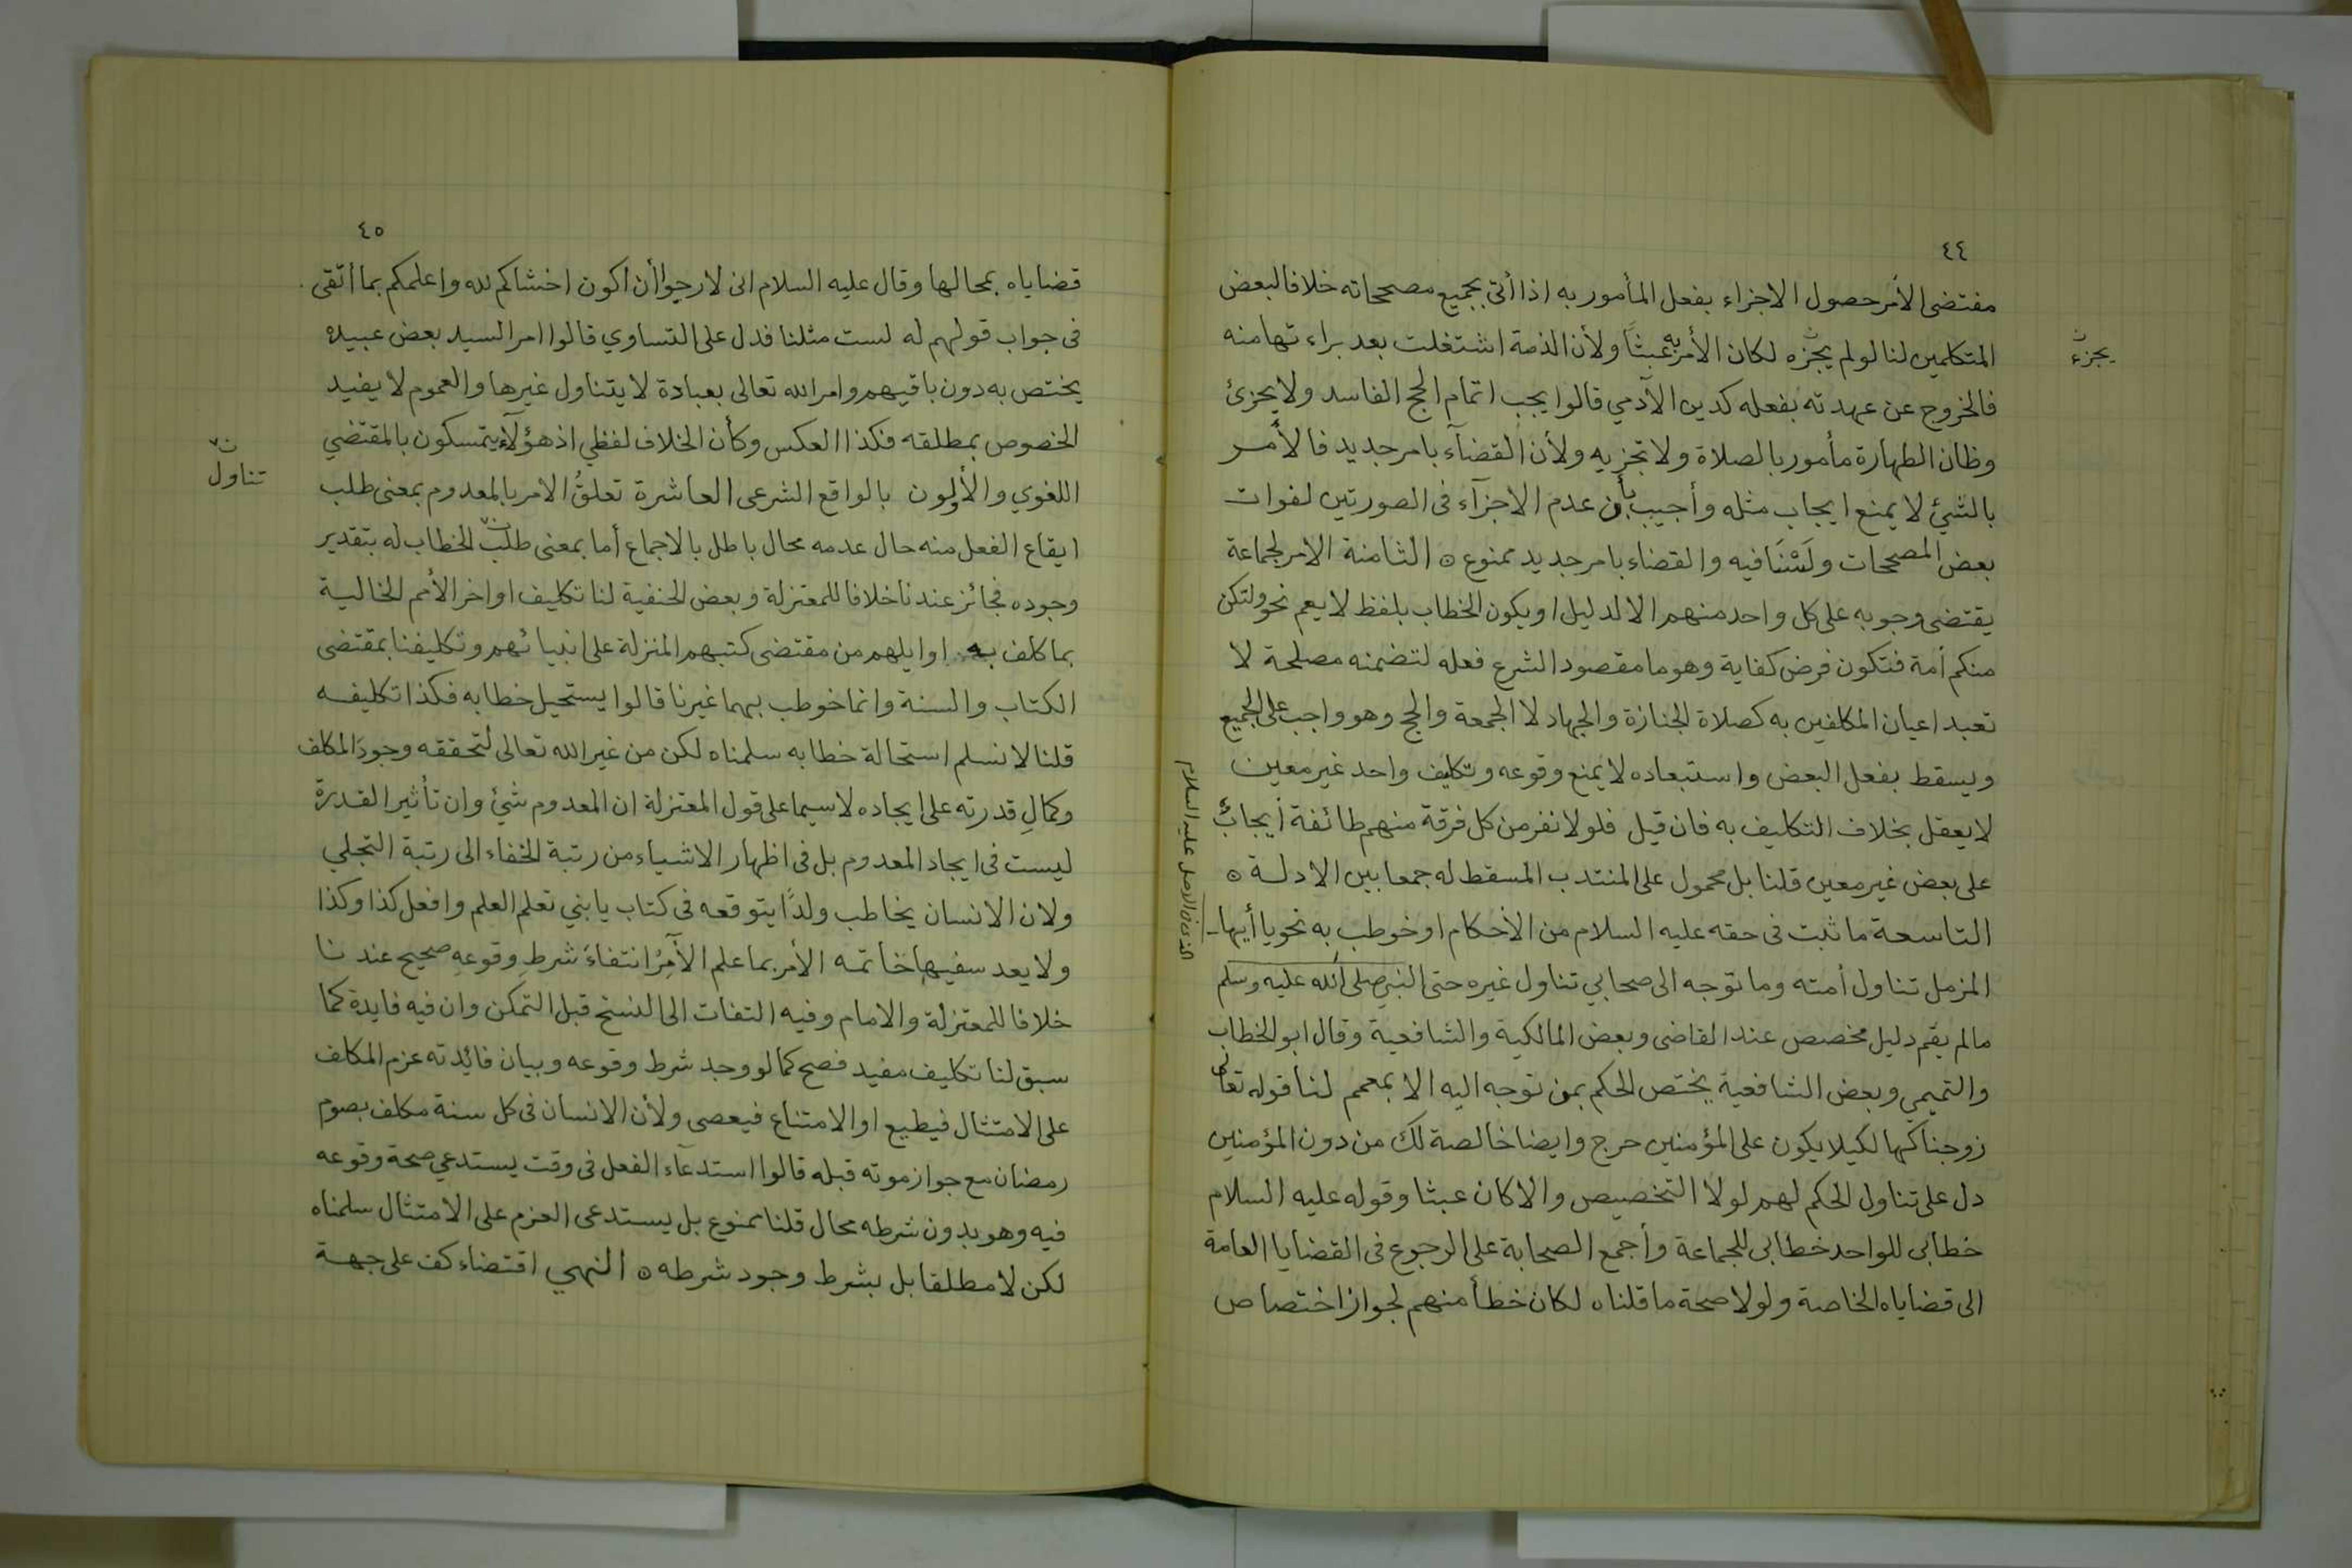 ٤٤
مقتضى الأمر حصول الاجزاء بفعل المأمور به اذا أتى بجميع مصححاته خلافا لبعض
المتكلمين لنا لو لم يجزه لكان الأمر به عبثًا ولأن الذمة اشتغلت بعد براءتها منه
يجزئ
فالخروج عن عهدته بفعله كدين الآدمي قالوا يجب اتمام الحج الفاسد ولا يجزئ
وظان الطهارة مأمور بالصلاة ولا تجزيه ولأن القضآء بامر جديد فالأمر
بالشئ لا يمنع ايجاب مثله وأجيب بأن عدم الاجزآء فى الصورتين لفوات
بعض المصححات ولَسْنَا فيه والقضاء بامر جديد ممنوع ٥ الثامنة الامر لجماعة
يقتضى وجوبه على كل واحد منهم الا لدليل او يكون الخطاب بلفظ لا يعم نحو ولتكن
منكم أمة فتكون فرض كفاية وهو ما مقصود الشرع فعله لتضمنه مصلحة لا
تعبد اعيان المكلفين به كصلاة الجنازة والجهاد لا الجمعة والحج وهو واجب على الجميع
ويسقط بفعل البعض واستبعاده لا يمنع وقوعه وتكليف واحد غير معين
لا يعقل بخلاف التكليف به فان قيل فلولا نفر من كل فرقة منهم طائفة أيجابٌ
على بعض غير معين قلنا بل محمول على المنتدب المسقط له جمعا بين الادلة ٥
التاسعة ما ثبت فى حقه عليه السلام من الأحكام او خوطب به نحو يا أيها
المزمل تناول أمته وما توجه الى صحابي تناول غيره حتى النبي صلى الله عليه وسلم
الذى فى الاصل عليه السلام
مالم يقم دليل مخصص عند القاضى وبعض المالكية والشافعية وقال ابو الخطاب
والتميمي وبعض الشافعية يختص الحكم بمن توجه اليه الا بمعمم لنا قوله تعالى
زوجناكها لكيلا يكون على المؤمنين حرج وايضا خالصة لك من دون المؤمنين
دل على تناول الحكم لهم لولا التخصيص والا كان عبثا وقوله عليه السلام
خطابى للواحد خطابى للجماعة وأجمع الصحابة على الرجوع فى القضايا العامة
الى قضاياه الخاصة ولولا صحة ما قلناه لكان خطأ منهم لجواز اختصاص
٤٥
قضاياه بمحالها وقال عليه السلام انى لارجوا أن اكون اخشاكم لله واعلمكم بما أتقى
فى جواب قولهم له لست مثلنا فدل على التساوي قالوا امر السيد بعض عبيده
يختص به دون باقيهم وامر الله تعالى بعبادة لا يتناول غيرها والعموم لا يفيد
الخصوص بمطلقه فكذا العكس وكأن الخلاف لفظي اذ هؤلآء يتمسكون بالمقتضي
اللغوي والأولون بالواقع الشرعى العاشرة تعلقُ الامر بالمعدوم بمعنى طلب
تناول
ايقاع الفعل منه حال عدمه محال باطل بالاجماع أما بمعنى طلب الخطاب له بتقدير
وجوده فجائز عندنا خلافا للمعتزلة وبعض الحنفية لنا تكليف اواخر الأمم الخالية
بما كلف به اوايلهم من مقتضى كتبهم المنزلة على انبيائهم وتكليفنا بمقتضى
الكتاب والسنة وانما خوطب بهما غيرنا قالوا يستحيل خطابه فكذا تكليفه
قلنا لا نسلم استحالة خطابه سلمناه لكن من غير الله تعالى لتحققه وجودَ المكلف
وكمالِ قدرته على ايجاده لا سيما على قول المعتزلة ان المعدوم شئ وان تأثير القدرة
ليست فى ايجاد المعدوم بل فى اظهار الاشياء من رتبة الخفاء الى رتبة التجلي
ولان الانسان يخاطب ولدًا يتوقعه فى كتاب يا بني تعلم العلم وافعل كذا وكذا
ولا يعد سفيها خاتمه الأمر بما علم الآمِرُ انتفاءَ شرطِ وقوعهِ صحيح عندنا
خلافا للمعتزلة والامام وفيه التفات الى النسخ قبل التمكن وان فيه فايدة كما
سبق لنا تكليف مفيد فصح كما لو وجد شرط وقوعه وبيان فائدته عزم المكلف
على الامتثال فيطيع او الامتناع فيعصى ولأن الانسان فى كل سنة مكلف بصوم
رمضان مع جواز موته قبله قالوا استدعآء الفعل فى وقت يستدعي صحة وقوعه
فيه وهو بدون شرطه محال قلنا ممنوع بل يستدعى العزم على الامتثال سلمناه
لكن لا مطلقا بل بشرط وجود شرطه ٥ النهي اقتضاء كف على جهة